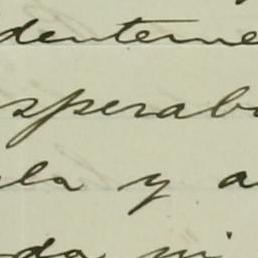 denteme
spera b
la y a
da mi